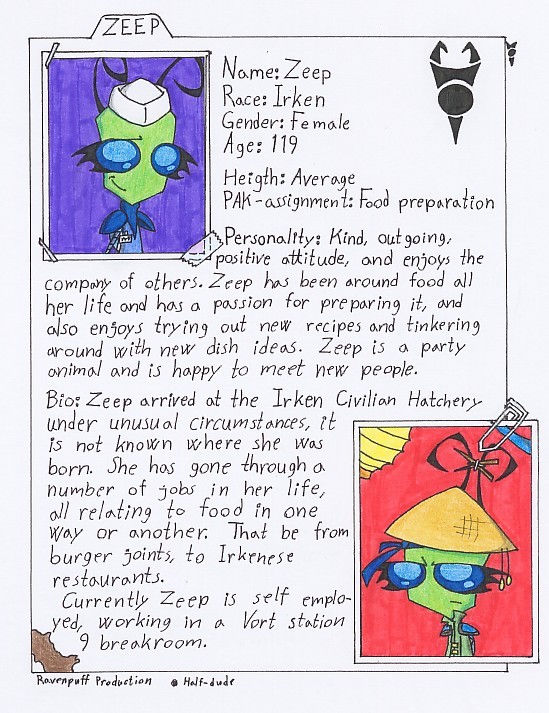 ZEEP
Name: Zeep
Race: Irken
Gender: Female
Age: 119
Heigth: Average
PAK-assignment: Food preparation
Personality: Kind, outgoing,
positive attitude, and enjoys the
company of others. Zeep has been around food all
her life and has a passion for preparing it, and
also enjoys trying out new recipes and tinkering
around with new dish ideas. Zeep is a party
animal and is happy to meet new people.
Bio: Zeep arrived at the Irken Civilian Hatchery
under unusual circumstances, it
is not known where she was
born. She has gone through a
number of jobs in her life,
all relating to food in one
way or another. That be from
burger joints, to Irkenese
restaurants.
Currently Zeep is self emplo-
yed, working in a Vort station
9 breakroom.
Ravenpuff Production @ Half-dude